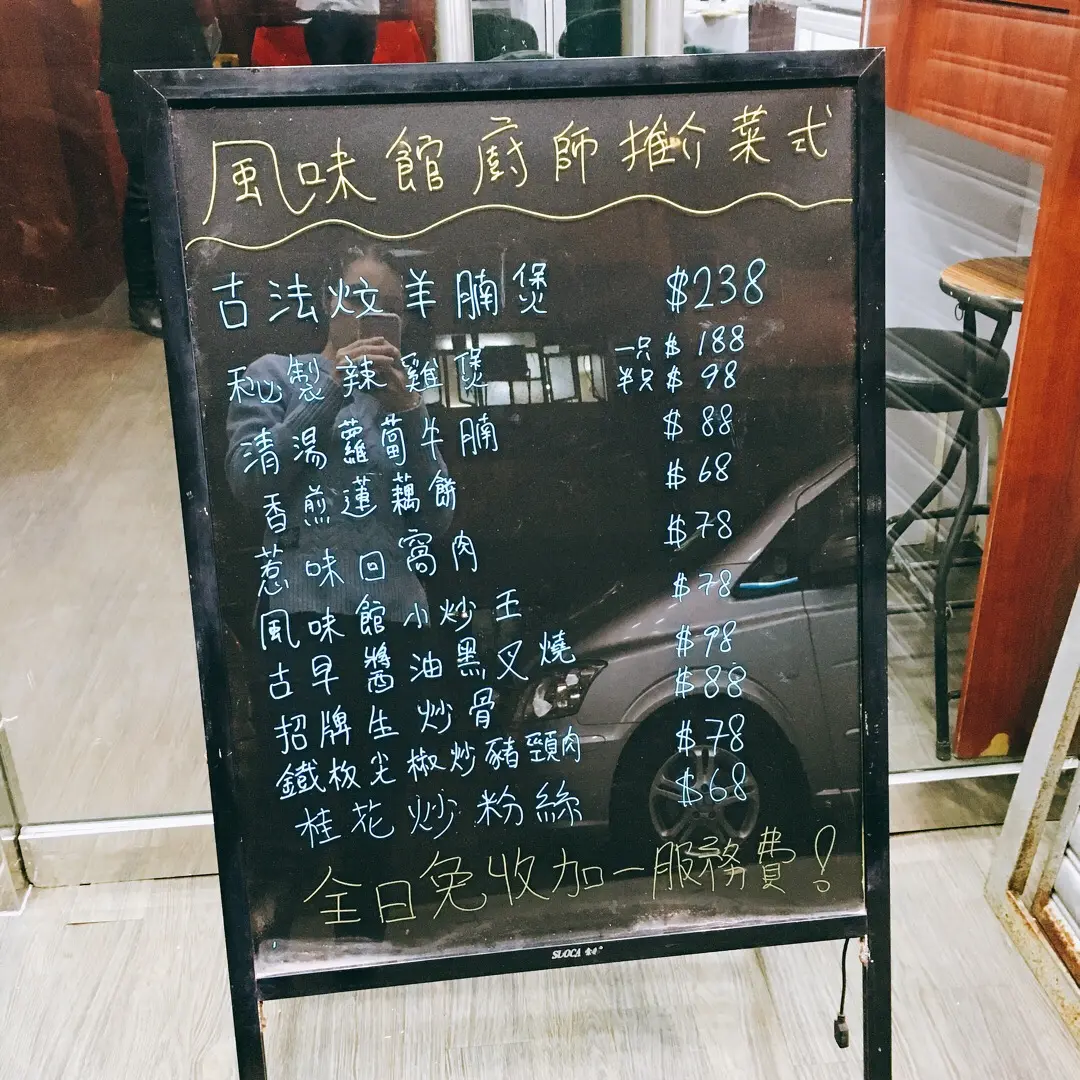 風味館廚師推介菜式
古法炆羊腩煲 $238
秘製辣雞煲 一只 $188
半只 $98
清湯蘿蔔牛腩 $88
香煎蓮藕餅 $68
惹味回窩肉 $78
風味館小炒王 $78
古早醬油黑叉燒 $98
招牌生炒骨 $88
鐵板尖椒炒豬頸肉 $78
桂花炒粉絲 $68
全日免收加一服務費!
SUOCA